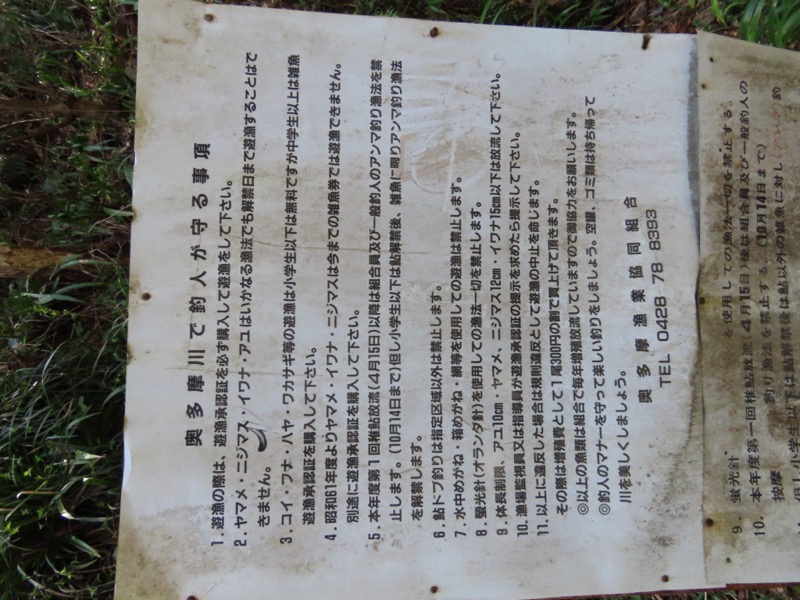 奥多摩川で釣人が守る事項
1. 遊漁の際は、遊漁承認証を必ず購入して遊漁をして下さい。
2. ヤマメ・ニジマス・イワナ・アユはいかなる漁法でも解禁日まで遊漁することはで
きません。
3. コイ・フナ・ハヤ・ワカサギ等の遊漁は小学生以下は無料ですが中学生以上は雑魚
遊漁承認証を購入して下さい。
4. 昭和61年度よりヤマメ・イワナ・ニジマスは今までの雑魚券では遊漁できません。
別途に遊漁承認証を購入して下さい。
5. 本年度第1回稚鮎放流(4月15日)以降は組合員及び一般釣人のアンマ釣り漁法を禁
止します。(10月14日まで)但し小学生以下は鮎解禁後、雑魚に限りアンマ釣り漁法
を解禁します。
6. 鮎ドブ釣りは指定区域以外は禁止します。
7. 水中めがね・箱めがね・網等を使用しての遊漁は禁止します。
8. 螢光針(オランダ針)を使用しての漁法一切を禁止します。
9. 体長制限、アユ10cm・ヤマメ、ニジマス12cm・イワナ15cm以下は放流して下さい。
10. 漁場監視員又は指導員が遊漁承認証の提示を求めたら提示して下さい。
11. 以上に違反した場合は規則違反として遊漁の中止を命じます。
その際は増殖費として1尾300円の割で買上げて頂きます。
◎以上の魚類は組合で毎年増殖放流していますので御協力をお願いします。
◎釣人のマナーを守って楽しい釣りをしましょう。空罐、ゴミ類は持ち帰って
川を美しくしましょう。
奥多摩漁業協同組合
TEL 0428 78 8393
9. 蛍光針 を使用しての漁法一切を禁止する。
10. 本年度第一回稚鮎放流(4月15日)後は組合員及び一般釣人の
按摩 釣り漁法を禁止する。(10月14日まで)
但し小学生以下は鮎解禁後は鮎以外の雑魚に対し 釣